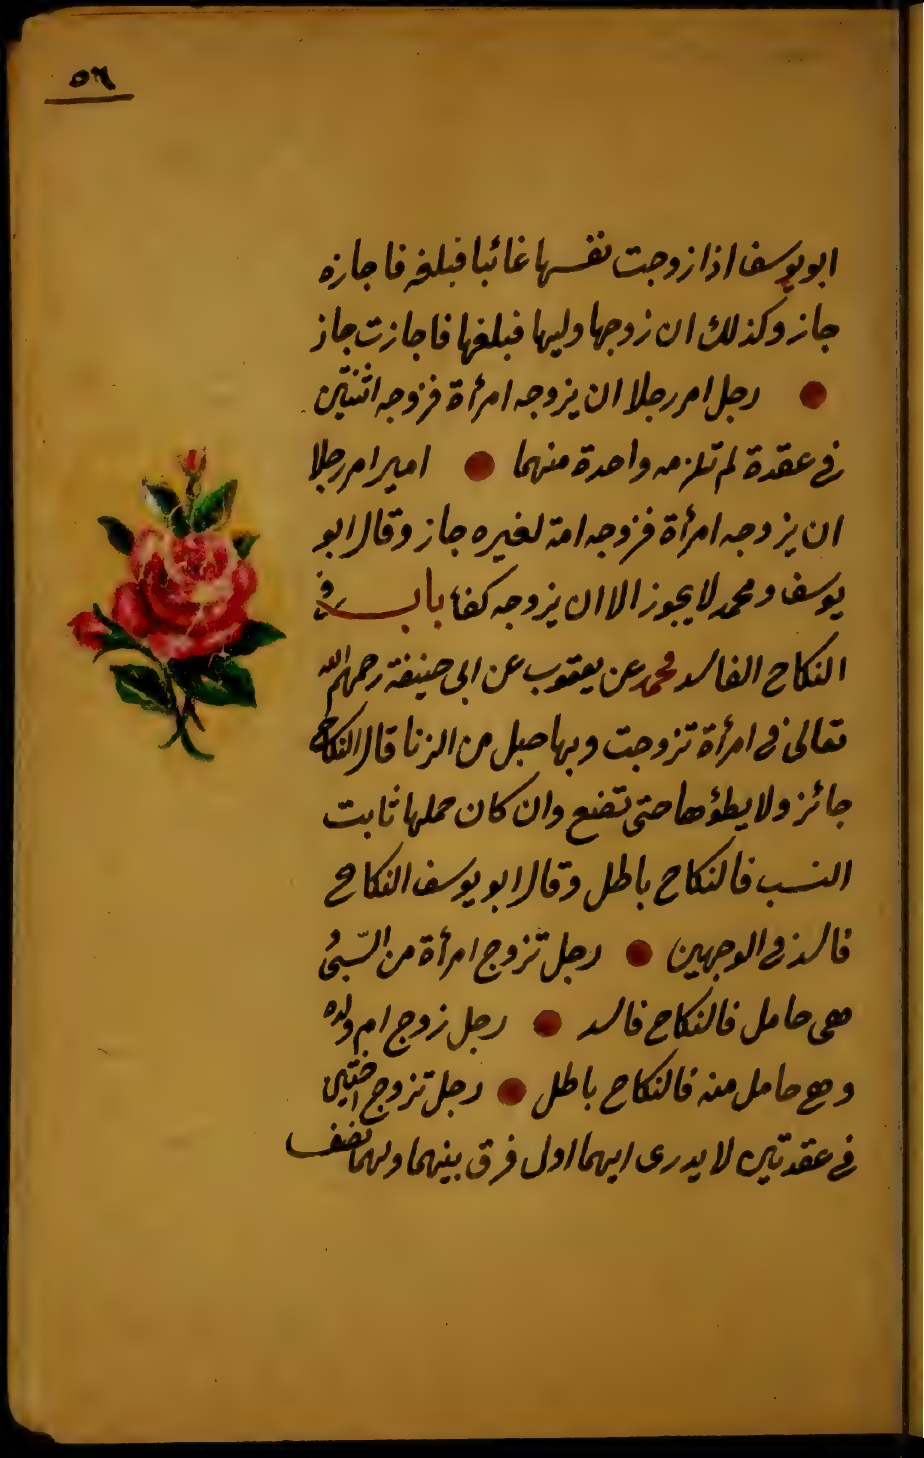 ٥٦
ابو يوسف اذا زوجت نفسها غائبا فبلغه فاجازه
جاز وكذلك ان زوجها وليها فبلغها فاجازت جاز
رجل امر رجلا ان يزوجه امرأة فزوجه اثنتين
فى عقدة لم تلزمه واحدة منهما امير امر رجلا
ان يزوجه امرأة فزوجه امة لغيره جاز وقال ابو
يوسف ومحمد لا يجوز الا ان يزوجه كفا باب فى
النكاح الفاسد محمد عن يعقوب عن ابى حنيفة رحمهم الله
تعالى فى امرأة تزوجت وبها حبل من الزنا قال النكاح
جائز ولا يطؤها حتى تضع وان كان حملها ثابت
النسب فالنكاح باطل وقال ابو يوسف النكاح
فاسد فى الوجهين رجل تزوج امرأة من السبى و
هى حامل فالنكاح فاسد رجل زوج ام ولده
وهى حامل منه فالنكاح باطل رجل تزوج اختين
فى عقدتين لا يدرى ايهما اول فرق بينهما ولهما نصف